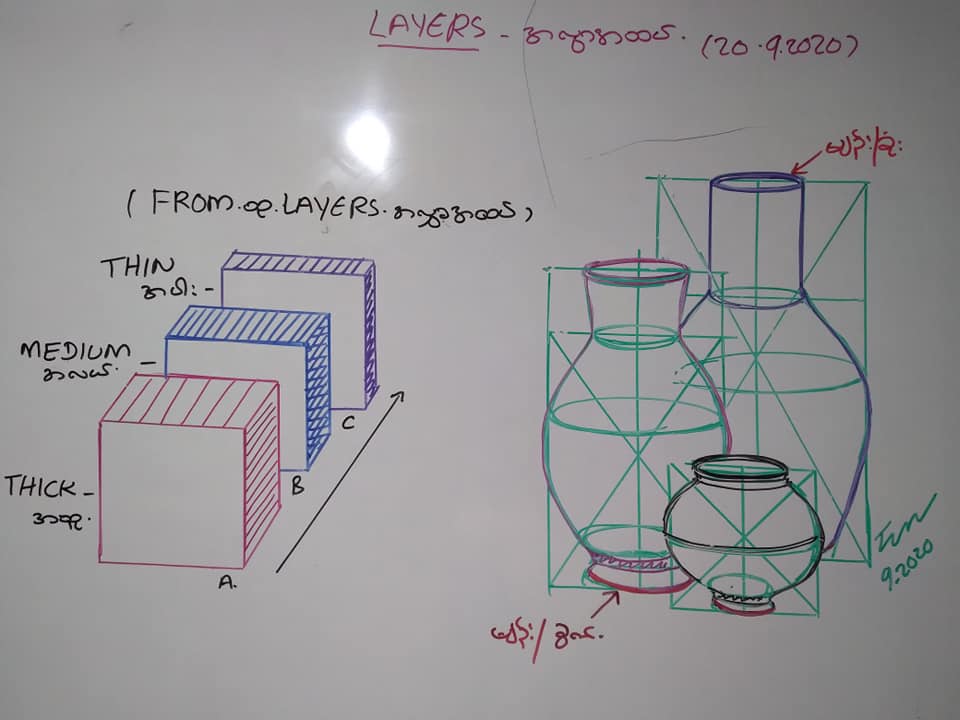 LAYERS - အလွှာအထပ်. (20.9.2020)
( FROM.ထု.LAYERS.အလွှာအထပ် )
THIN
အပါး -
MEDIUM -
အလယ်.
THICK -
အထူ.
A.
B
C
9.2020